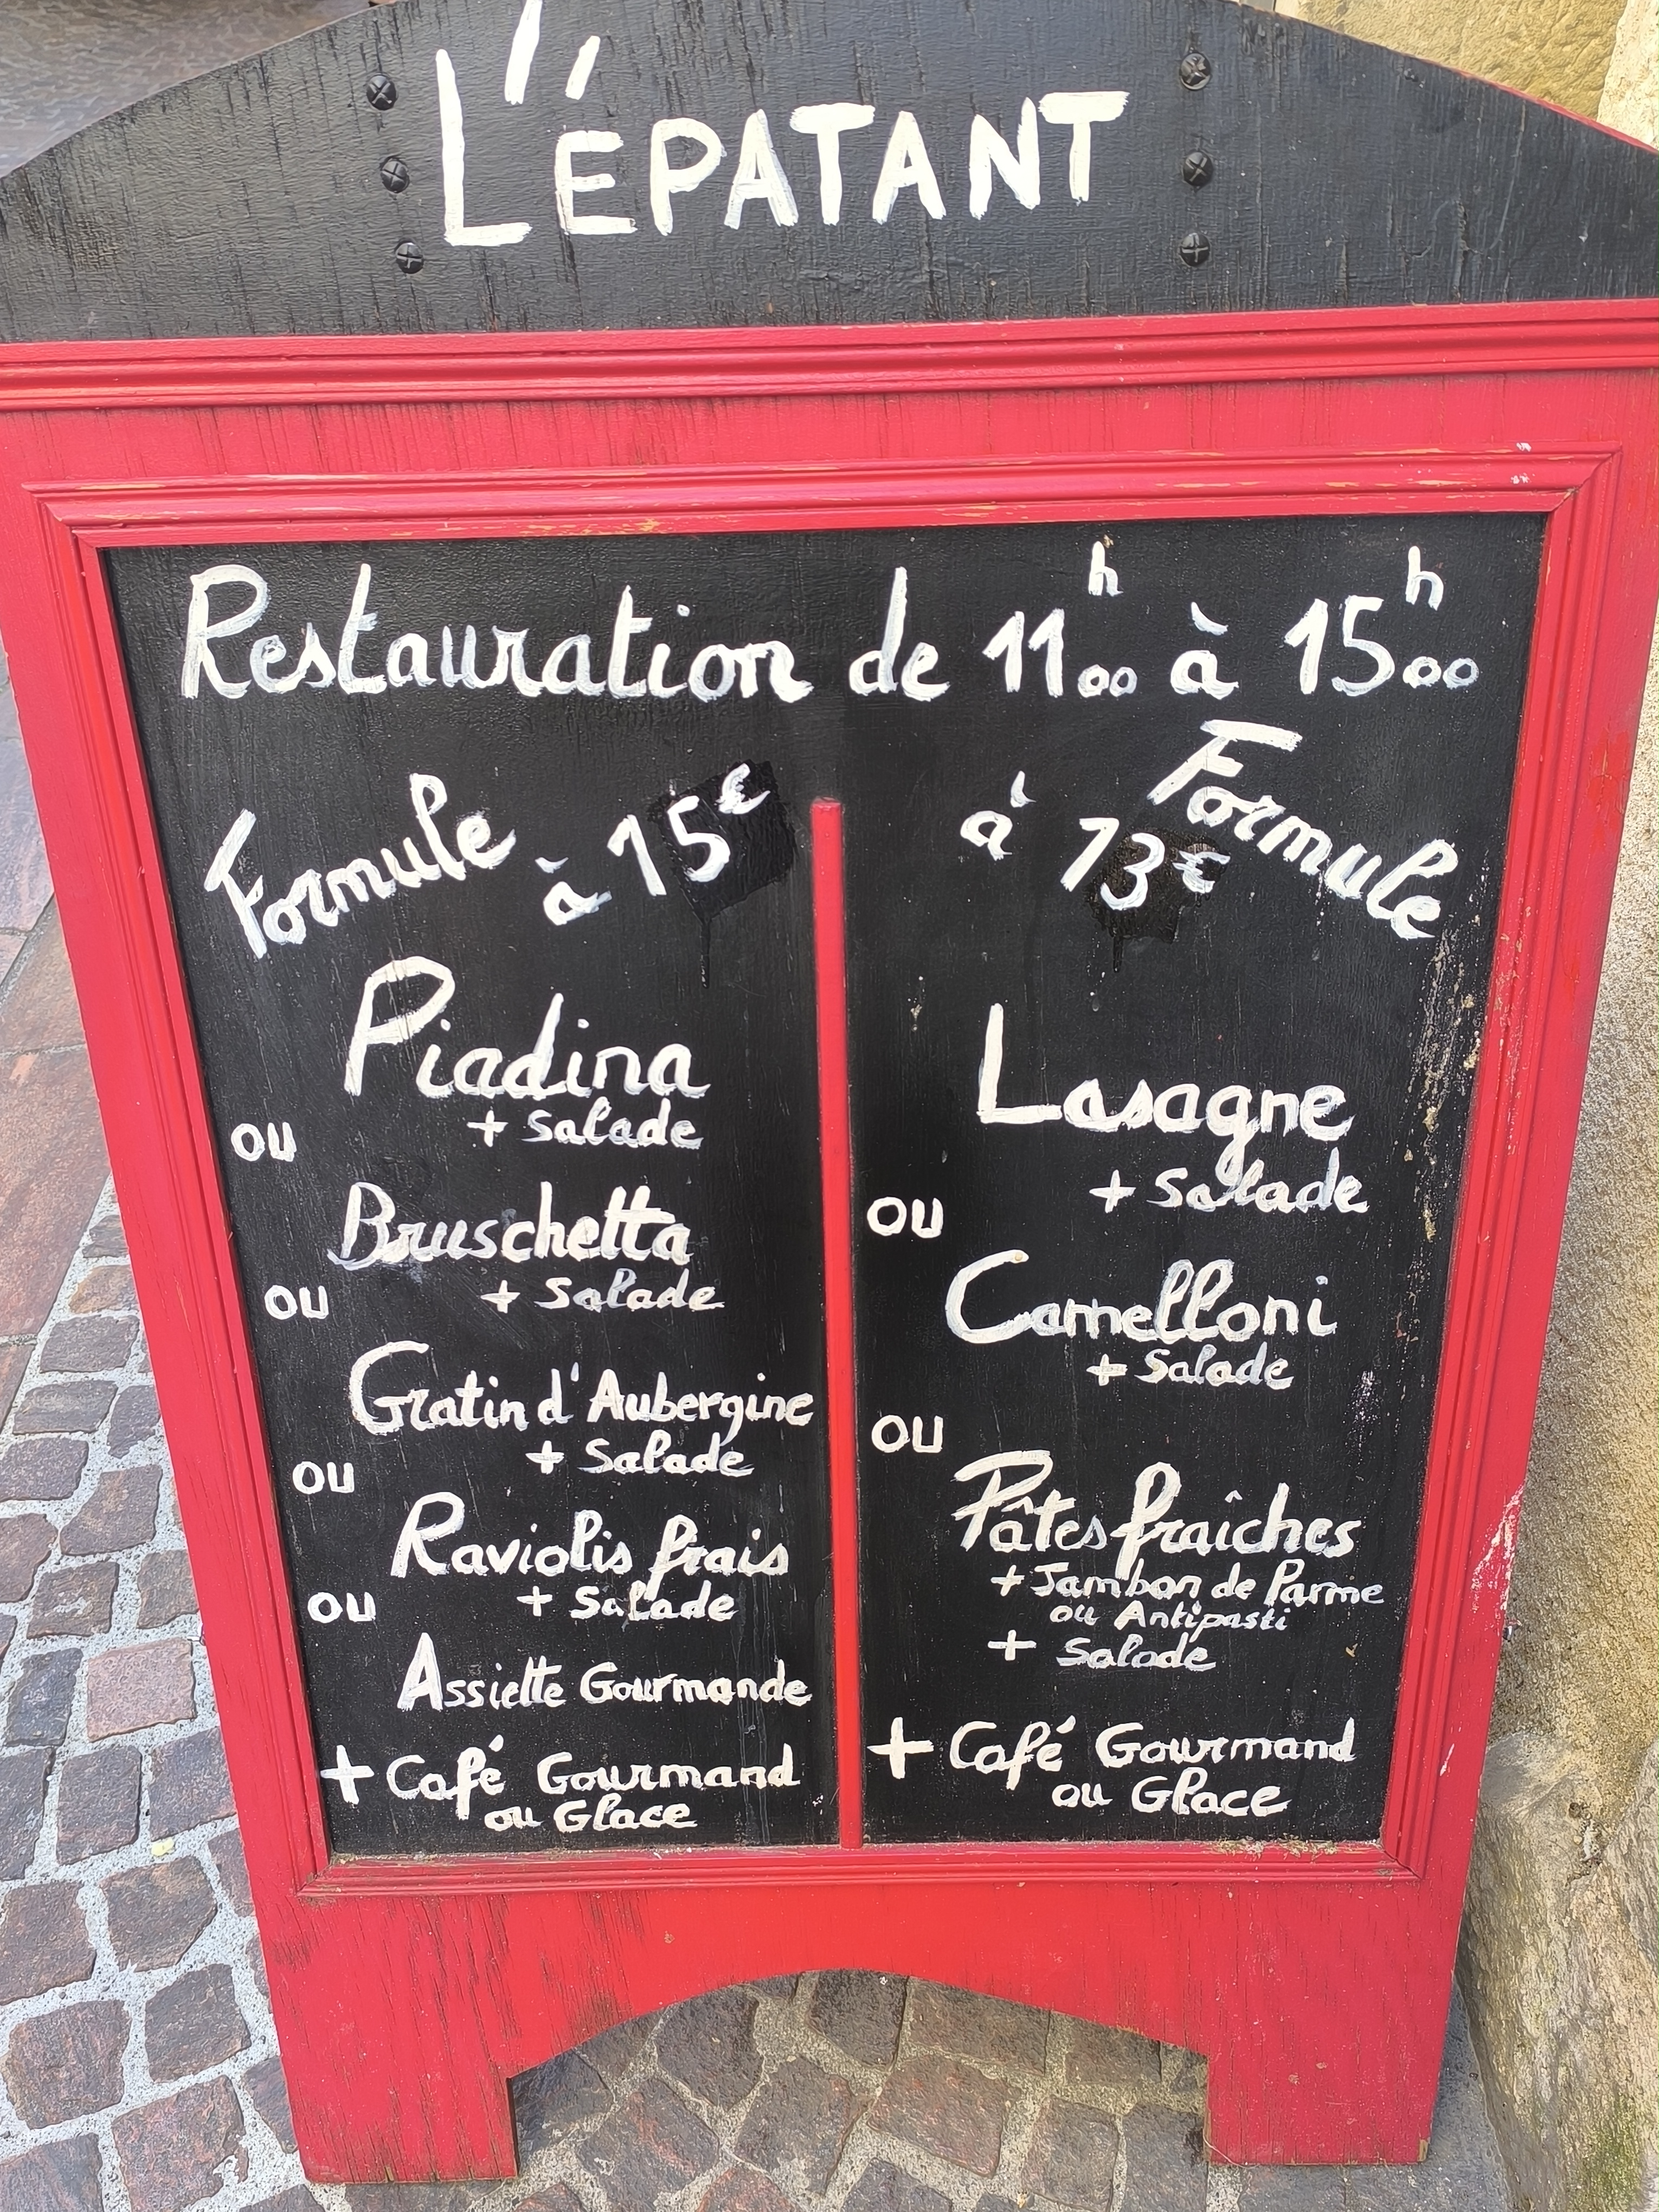 L'ÉPATANT
Restauration de 11h00 à 15h00
Formule à 15€
Piadina
+ Salade
ou
Bruschetta
+ Salade
ou
Gratin d'Aubergine
+ Salade
ou
Raviolis frais
+ Salade
ou
Assiette Gourmande
+ Café Gourmand
ou Glace
Formule
à 13€
Lasagne
+ Salade
ou
Camelloni
+ Salade
ou
Pâtes fraîches
+ Jambon de Parme
ou Antipasti
+ Salade
+ Café Gourmand
ou Glace